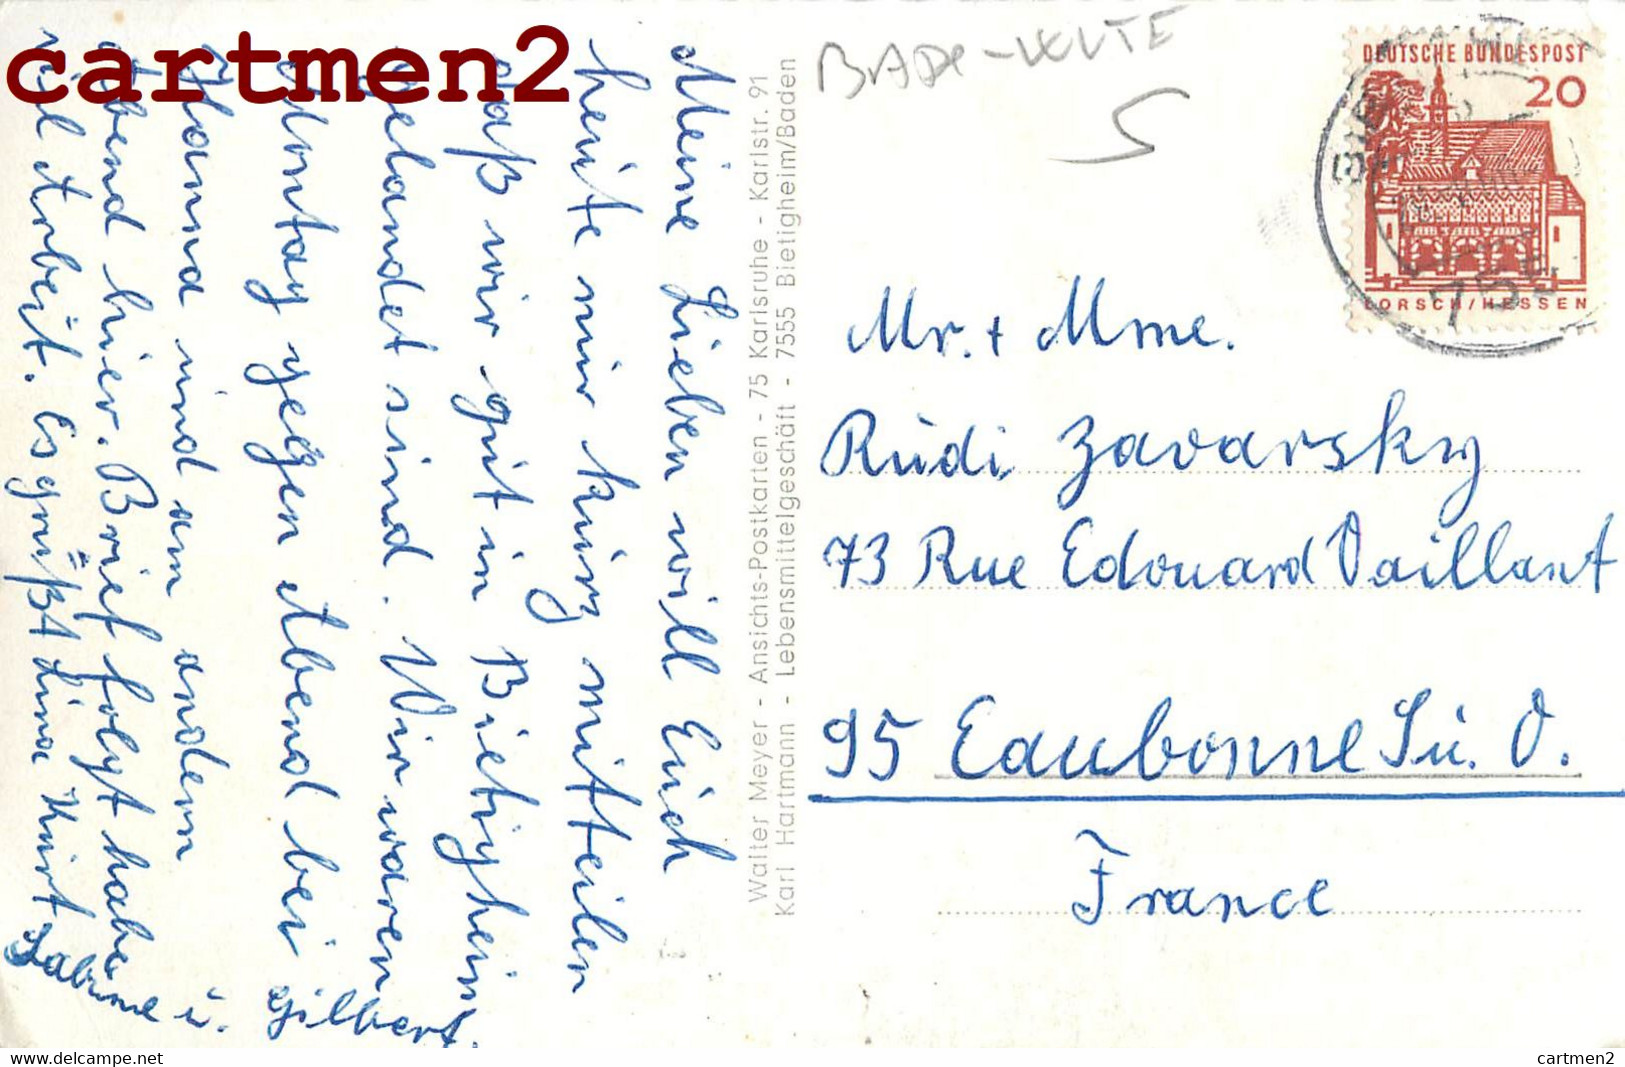 cartmen2
Meine Lieben will Euch
heute nur kurz mitteilen
daß wir gut in Bietigheim
gelandet sind. Wir waren
Montag gegen Abend bei Gilbert
Hanna und am andern
Abend hier. Brief folgt habe
viel Arbeit. Es grüßt Lina Kurt
Sabine u.
Walter Meyer - Ansichts-Postkarten - 75 Karlsruhe - Karlstr. 91
Karl Hartmann - Lebensmittelgeschäft - 7555 Bietigheim/Baden
DEUTSCHE BUNDESPOST
20
LORSCH/HESSEN
Mr. + Mme.
Rudi Zavarsky
73 Rue Edouard Vaillant
95 Eaubonne
France
delcampe.net
cartmen2